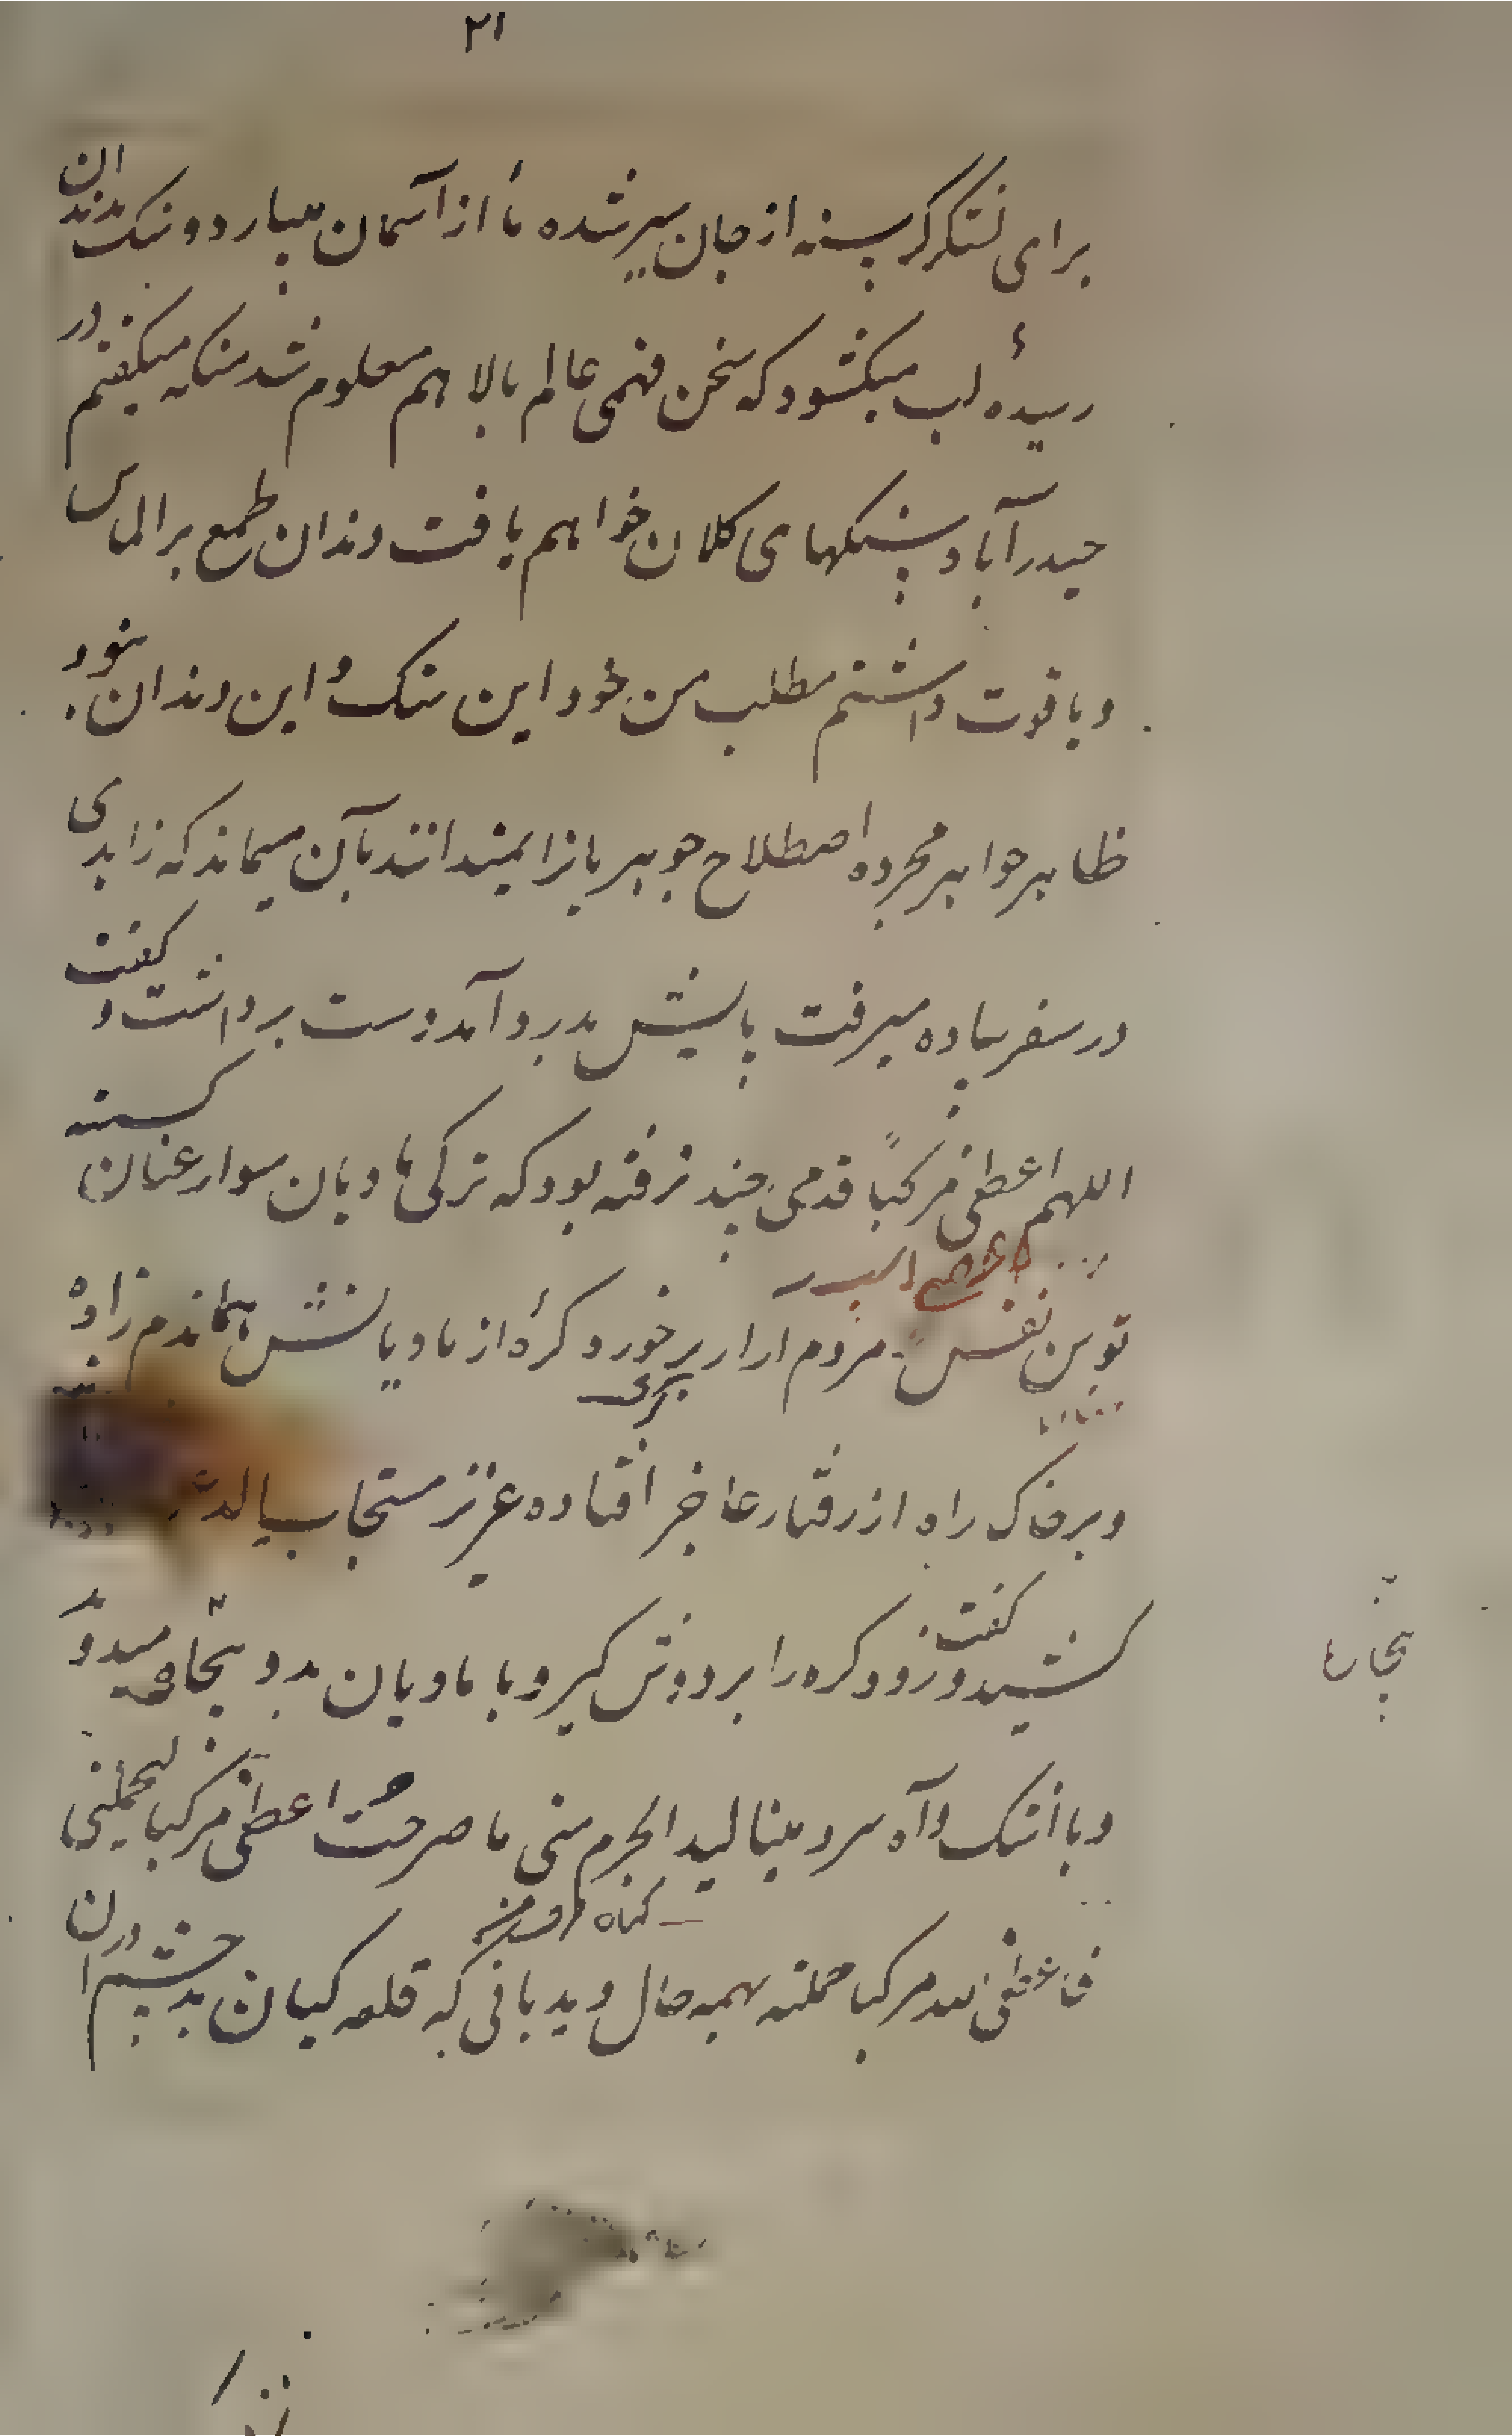 ۲۱
برای لشکر گرسنه از جان سیر شده تا از آسمان میبارد و سنک بدندان
رسیدهٔ لب میکشود که سخن فهمی عالم بالا هم معلوم شد منکه میکفتم در
حیدرآباد سنکهای کلان خواهم یافت دندان طمع بر الماس
و یاقوت داشتم مطلب من خود این سنک و این دندان نبود
ظاهر جواهر مجرده اصطلاح جوهریانرا نمیدانند بآن میماند که زاهدی
در سفر پیاده میرفت پایش بدرد آمد دست برداشت و کفت
اللهم اعطنی مرکبًا قدمی چند نرفته بود که ترکی مادیان سوار عنان کسسته
توسن نفس مردم آزار برخورد کرهٔ از مادیانش همانذم زاده
و بر خاک راه از رفتار عاجز افتاده عزیز مستجاب الد
کشید و کفت زود کره را بر دوش کیر و با مادیان بدو بیچاره میدوید
بیچاره
و با اشک و آه سرد مینالید الجرم منی ما صرحت اعطنی مرکبا لیحملنی
کناه از من
فاعطی الله مرکبا حملته بهمه حال دید بانی که قلعه کیان بد چشم از ان